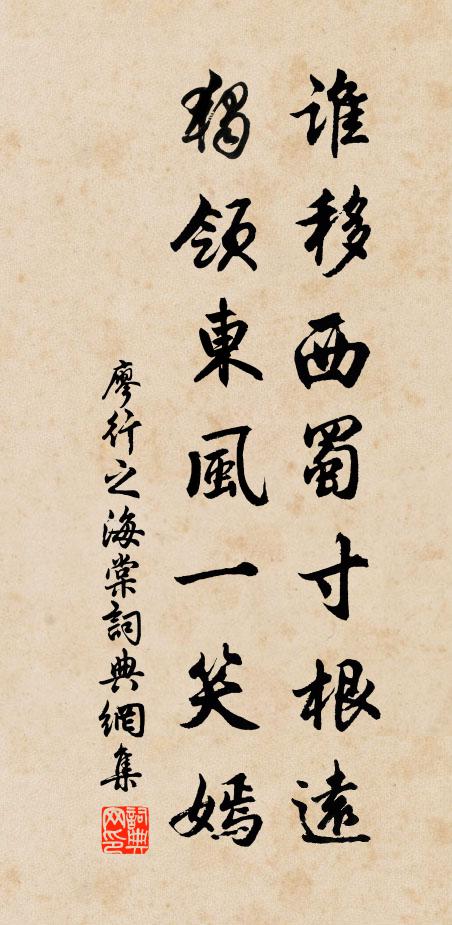 誰移西蜀寸根遠
獨領東風一笑嫣
廖行之海棠詞典網集
詞典網印